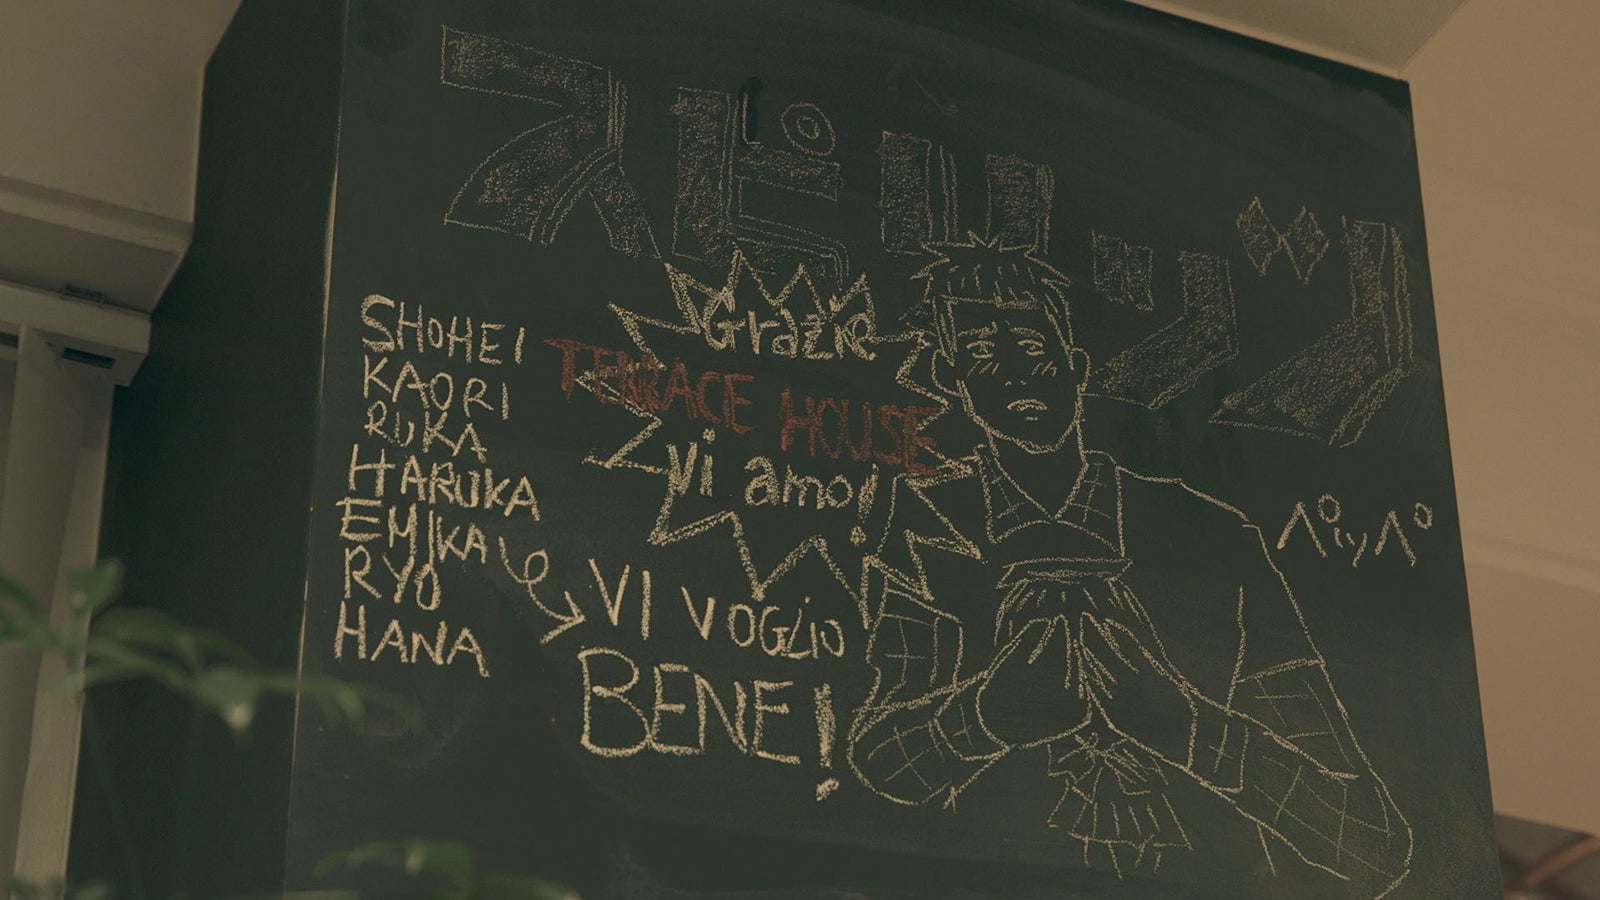 スピリッツ
SHOHEI
KAORI
RUKA
HARUKA
EMIKA
RYO
HANA
Grazie
TERRACE HOUSE
Vi amo!
VI VOGLIO
BENE!